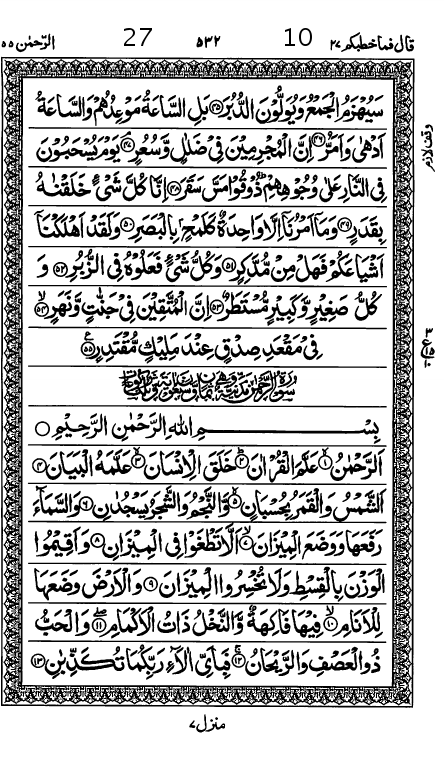 قال فما خطبكم ٢٧ 10 ٥٣٢ 27 الرّحمٰن ٥٥
سَيُهْزَمُ الْجَمْعُ وَيُوَلُّوْنَ الدُّبُرَ ﴿٤٥﴾ بَلِ السَّاعَةُ مَوْعِدُهُمْ وَالسَّاعَةُ
وقف لازم
اَدْهٰى وَاَمَرُّ ﴿٤٦﴾ اِنَّ الْمُجْرِمِيْنَ فِيْ ضَلٰلٍ وَّسُعُرٍ ﴿٤٧﴾ يَوْمَ يُسْحَبُوْنَ
فِي النَّارِ عَلٰى وُجُوْهِهِمْ ذُوْقُوْا مَسَّ سَقَرَ ﴿٤٨﴾ اِنَّا كُلَّ شَيْءٍ خَلَقْنٰهُ
بِقَدَرٍ ﴿٤٩﴾ وَمَا اَمْرُنَا اِلَّا وَاحِدَةٌ كَلَمْحٍ بِالْبَصَرِ ﴿٥٠﴾ وَلَقَدْ اَهْلَكْنَا
اَشْيَاعَكُمْ فَهَلْ مِنْ مُّدَّكِرٍ ﴿٥١﴾ وَكُلُّ شَيْءٍ فَعَلُوْهُ فِي الزُّبُرِ ﴿٥٢﴾ وَ
كُلُّ صَغِيْرٍ وَّكَبِيْرٍ مُّسْتَطَرٌ ﴿٥٣﴾ اِنَّ الْمُتَّقِيْنَ فِيْ جَنّٰتٍ وَّنَهَرٍ ﴿٥٤﴾
فِيْ مَقْعَدِ صِدْقٍ عِنْدَ مَلِيْكٍ مُّقْتَدِرٍ ﴿٥٥﴾
بِسْمِ اللّٰهِ الرَّحْمٰنِ الرَّحِيْمِ
اَلرَّحْمٰنُ ﴿١﴾ عَلَّمَ الْقُرْاٰنَ ﴿٢﴾ خَلَقَ الْاِنْسَانَ ﴿٣﴾ عَلَّمَهُ الْبَيَانَ ﴿٤﴾
اَلشَّمْسُ وَالْقَمَرُ بِحُسْبَانٍ ﴿٥﴾ وَّالنَّجْمُ وَالشَّجَرُ يَسْجُدٰنِ ﴿٦﴾ وَالسَّمَآءَ
رَفَعَهَا وَوَضَعَ الْمِيْزَانَ ﴿٧﴾ اَلَّا تَطْغَوْا فِي الْمِيْزَانِ ﴿٨﴾ وَاَقِيْمُوا
الْوَزْنَ بِالْقِسْطِ وَلَا تُخْسِرُوا الْمِيْزَانَ ﴿٩﴾ وَالْاَرْضَ وَضَعَهَا
لِلْاَنَامِ ﴿١٠﴾ فِيْهَا فَاكِهَةٌ وَّالنَّخْلُ ذَاتُ الْاَكْمَامِ ﴿١١﴾ وَالْحَبُّ
ذُو الْعَصْفِ وَالرَّيْحَانُ ﴿١٢﴾ فَبِاَيِّ اٰلَآءِ رَبِّكُمَا تُكَذِّبٰنِ ﴿١٣﴾
منزل ٧